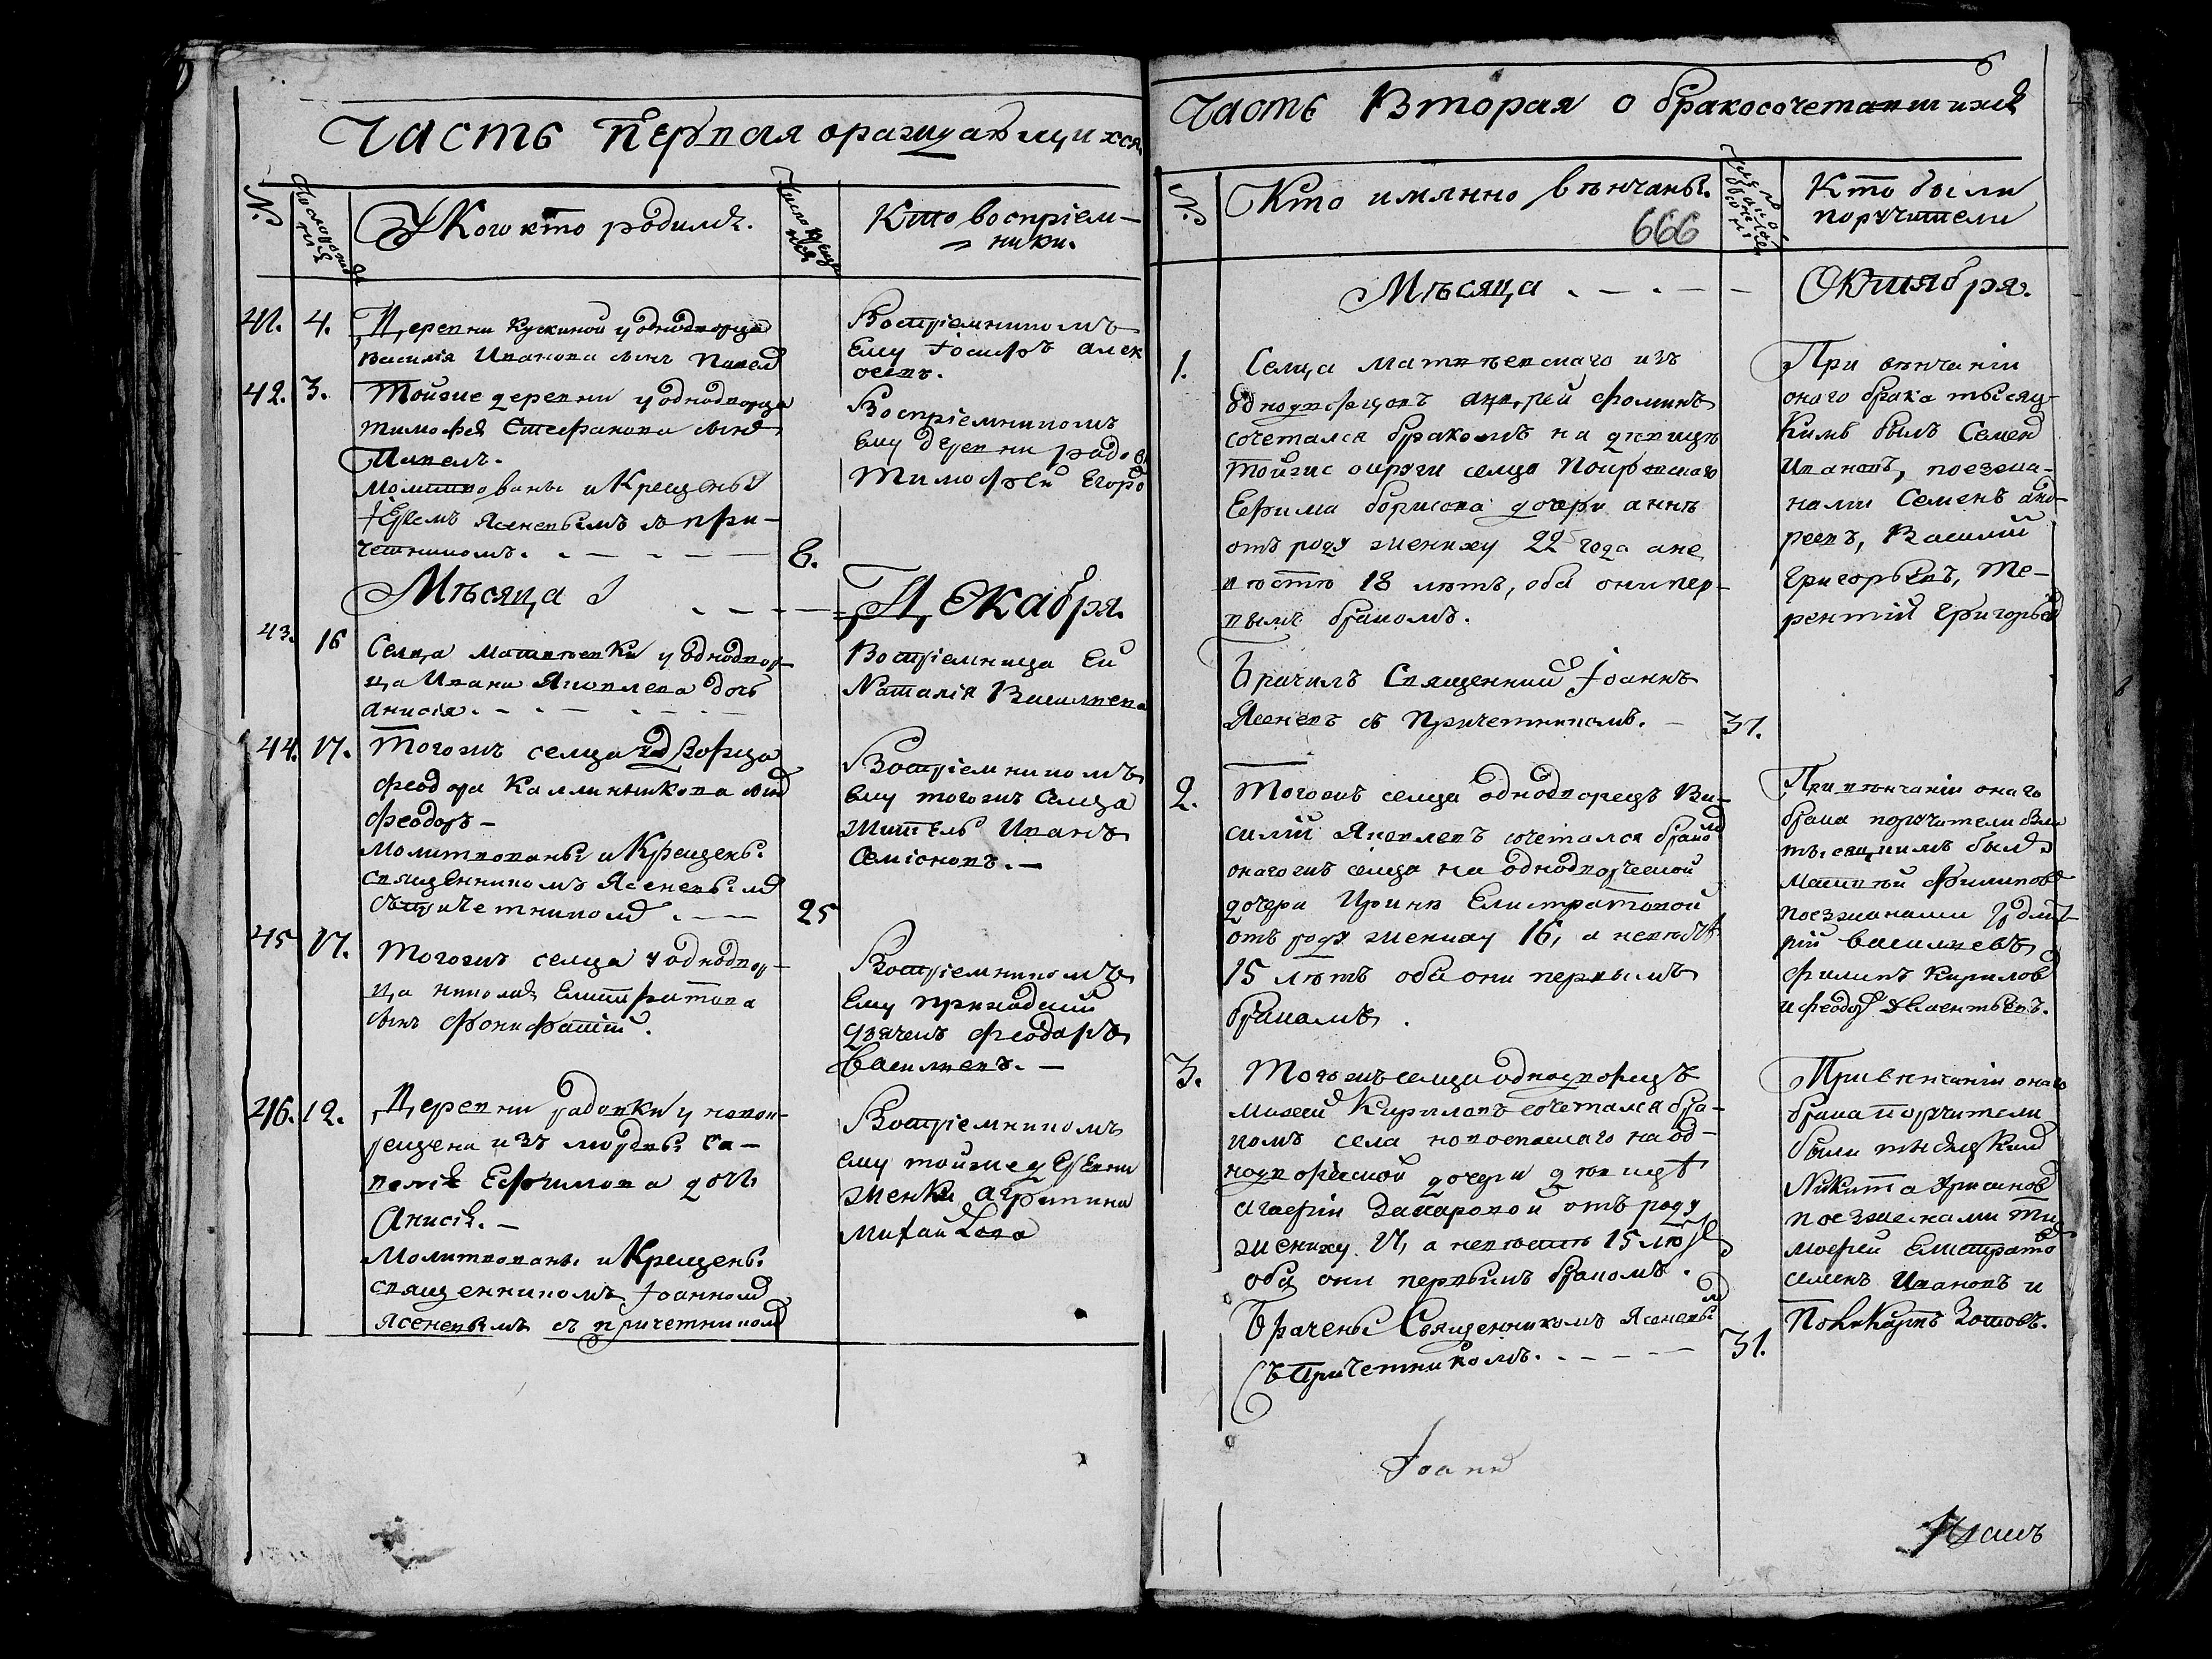 Часть первая ораждающихся
№.
Число рождения
У Кого кто родился.
Число крещения
Кто восприем-
ники.
41. 4. Деревни Кускиной у однодворца
Василія Иванова сынъ Павелъ
Воспріемникомъ
ему Іосифъ Алек
сеевъ.
42. 3. Тойже деревни у однодворца
Тимофея Стефанова сынъ
Павелъ.
Молитвованы и Крещены
Іереемъ Ясеневымъ съ при-
четникомъ. 8.
Воспріемникомъ
ему деревни
Тимофей Егоро
Мѣсяца Декабря.
43. 16 Селца Матвѣевки у однодвор-
ца Ивана Яковлева дочь
Анисія.
Воспріемница ей
Наталія Васильева
44. 17. Тогожъ селца одворца
Феодора Каллиникова сынъ
Феодоръ -
Молитвованы и Крещены
священникомъ Ясеневымъ
съ причетникомъ 25
Воспріемникомъ
ему тогожъ селца
житель Иванъ
Семіоновъ. -
45 17. Тогожъ селца у однодвор-
ца Николая Елистратова
сынъ Фонифатій.
Воспріемникомъ
ему приходскій
дьячекъ Феодоръ
Васильевъ. -
46. 12. Деревни Радовки у новок-
рещена изъ мордвы Са-
велія Ефимова дочь
Анисія. -
Молитвованы и Крещены
священникомъ Іоанномъ
Ясеневымъ съ причетникомъ
Воспріемникомъ
ему тойже деревни
женка Агрипина
Михайлова
6
Часть Вторая о бракосочетавшихся
№
Кто имянно вѣнчаны.
666
Кто были
поручители
Мѣсяца Октября.
1. Селца Матвѣевскаго изъ
однодворцовъ Андрей Фоминъ
сочетался бракомъ на дѣвицѣ
тойже округи селца Покровскаго
Ефима Борисова дочери Аннѣ
отъ роду жениху 22 года а не
вѣстѣ 18 лѣтъ, оба они пер-
вымъ бракомъ.
Брачилъ Священникъ Іоаннъ
Ясеневъ съ Причетникомъ. 31.
При вѣнчаніи
онаго брака тысяц-
кимъ былъ Семенъ
Ивановъ, поезжа-
нами Семенъ анд-
реевъ, Василий
Григорьевъ, Те-
рентій Григорьевъ
2. Тогожъ селца однодворецъ Ва-
силій Яковлевъ сочетался бракомъ
оногожъ селца на однодворческой
дочери Иринѣ Елистратовой
отъ роду жениху 16, а невѣстѣ
15 лѣтъ оба они первымъ
бракомъ.
При вѣнчаніи онаго
брака поручители были
тысяцкимъ былъ
Матвѣй Филиповъ
поезжанами Дмит
рій Васильевъ
Филипъ Кириловъ
и Феодоръ
3. Тогожъ селца однодворецъ
Михей Кириловъ сочетался бра-
комъ села новоспаскаго на од-
нодворческой дочери дѣвицѣ
Агафіи Захаровой отъ роду
жениху 17, а невѣстѣ 15 лѣтъ
оба они первымъ бракомъ.
Брачены Священникомъ Ясеневымъ
съ Причетникомъ. 31.
При венчаніи онаго
брака поручители
были тысяцкимъ
Никита Хрисановъ
поезжанами Ти
мофей Елистратовъ
Семенъ Ивановъ и
Поликарпъ Зотовъ.
Іоаннъ